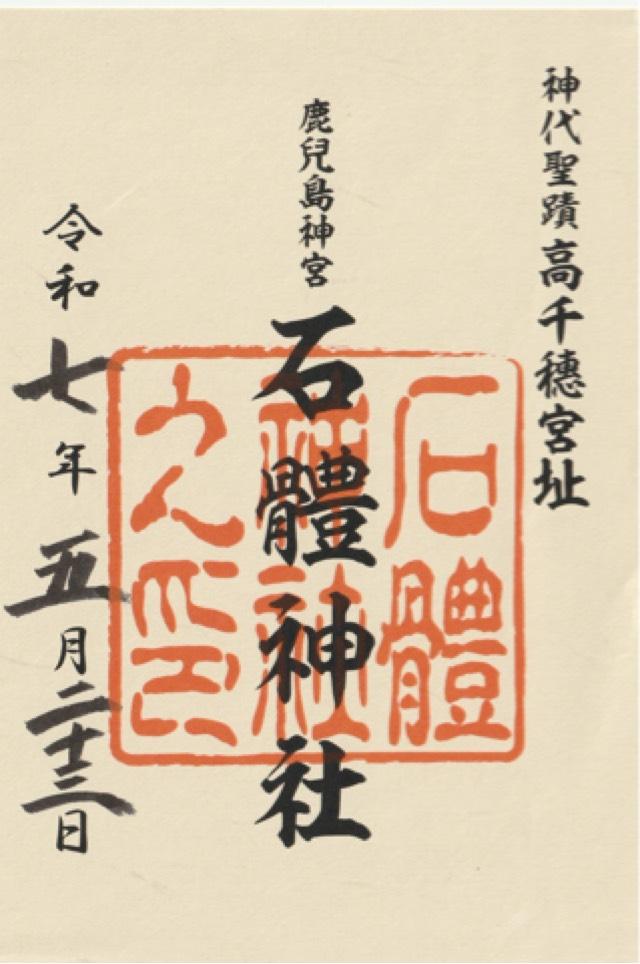 神代聖蹟高千穂宮址
鹿兒島神宮
石體神社
令和七年五月二十三日
石體
神社
之印